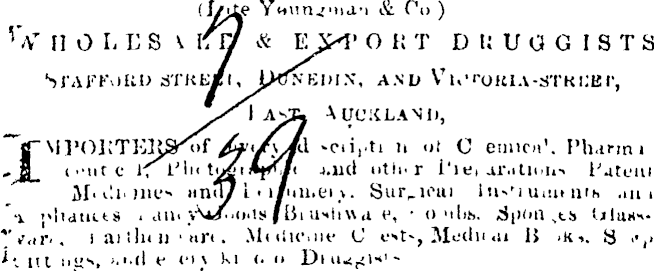 (Late Youngman & Co)
WHOLESALE & EXPORT DRUGGISTS
STAFFORD STREET, DUNEDIN, AND VICTORIA-STREET,
EAST, AUCKLAND,
IMPORTERS of every description of Chemical, Pharma
ceutical, Photographic and other Preparations Patent
Medicines and Perfumery, Surgical Instruments and
Appliances Fancy Goods Brushware, Combs, Sponges Glass-
ware, Earthenware, Medicine Chests, Medical Books, Shop
Fittings, and every kind of Druggists
7
39